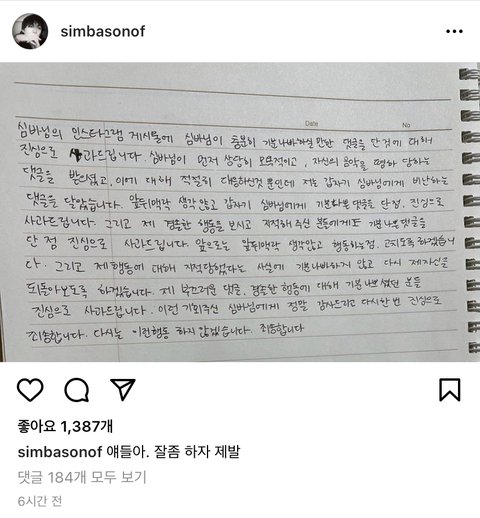 simbasonof
Date
No
심바님의 인스타그램 게시물에 심바님이 충분히 기분나빠하실 만한 댓글을 단것에 대해
진심으로 사과드립니다. 심바님이 먼저 상당히 모욕적이고, 자신의 음악을 폄하 당하는
댓글을 받으셨고, 이에 대해 적절히 대응하신것 뿐인데 저는 갑자기 심바님에게 비난하는
댓글을 달았습니다. 앞뒤맥락 생각 않고 갑자기 심바님에게 기분나쁜 댓글을 단점, 진심으로
사과드립니다. 그리고 제 경솔한 행동을 보시고 지적해주신 분들에게도 기분나쁜댓글을
단 점 진심으로 사과드립니다. 앞으로는 앞뒤맥락 생각않고 행동하는점, 고치도록하겠습니
다. 그리고 제행동에 대해 지적당했다는 사실에 기분나빠하지 않고 다시 제자신을
되돌아보도록 하겠습니다. 제 부끄러운 댓글, 경솔한 행동에 대해 기분나쁘셨던 분들
진심으로 사과드립니다. 이런 기회주신 심바님에게 정말 감사드리고 다시한 번 진심으로
죄송합니다. 다시는 이런행동 하지 않겠습니다. 죄송합니다
좋아요 1,387개
simbasonof 얘들아. 잘좀 하자 제발
댓글 184개 모두 보기
6시간 전